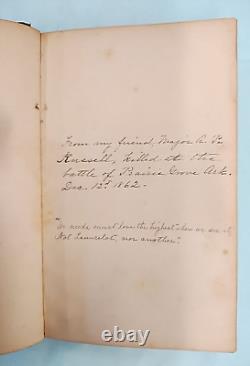 From my friend, Major A. P.
Russell, killed at the
battle of Prairie Grove Ark.
Dec. 12th 1862.
"We needs must love the highest when we see it,
Not Launcelot, nor another."
© ebay